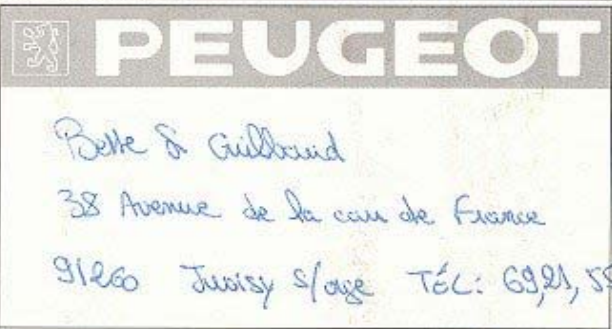 PEUGEOT
Bette & Guilbaud
38 Avenue de la cour de France
91260 Juvisy s/orge TÉL: 69,21,55